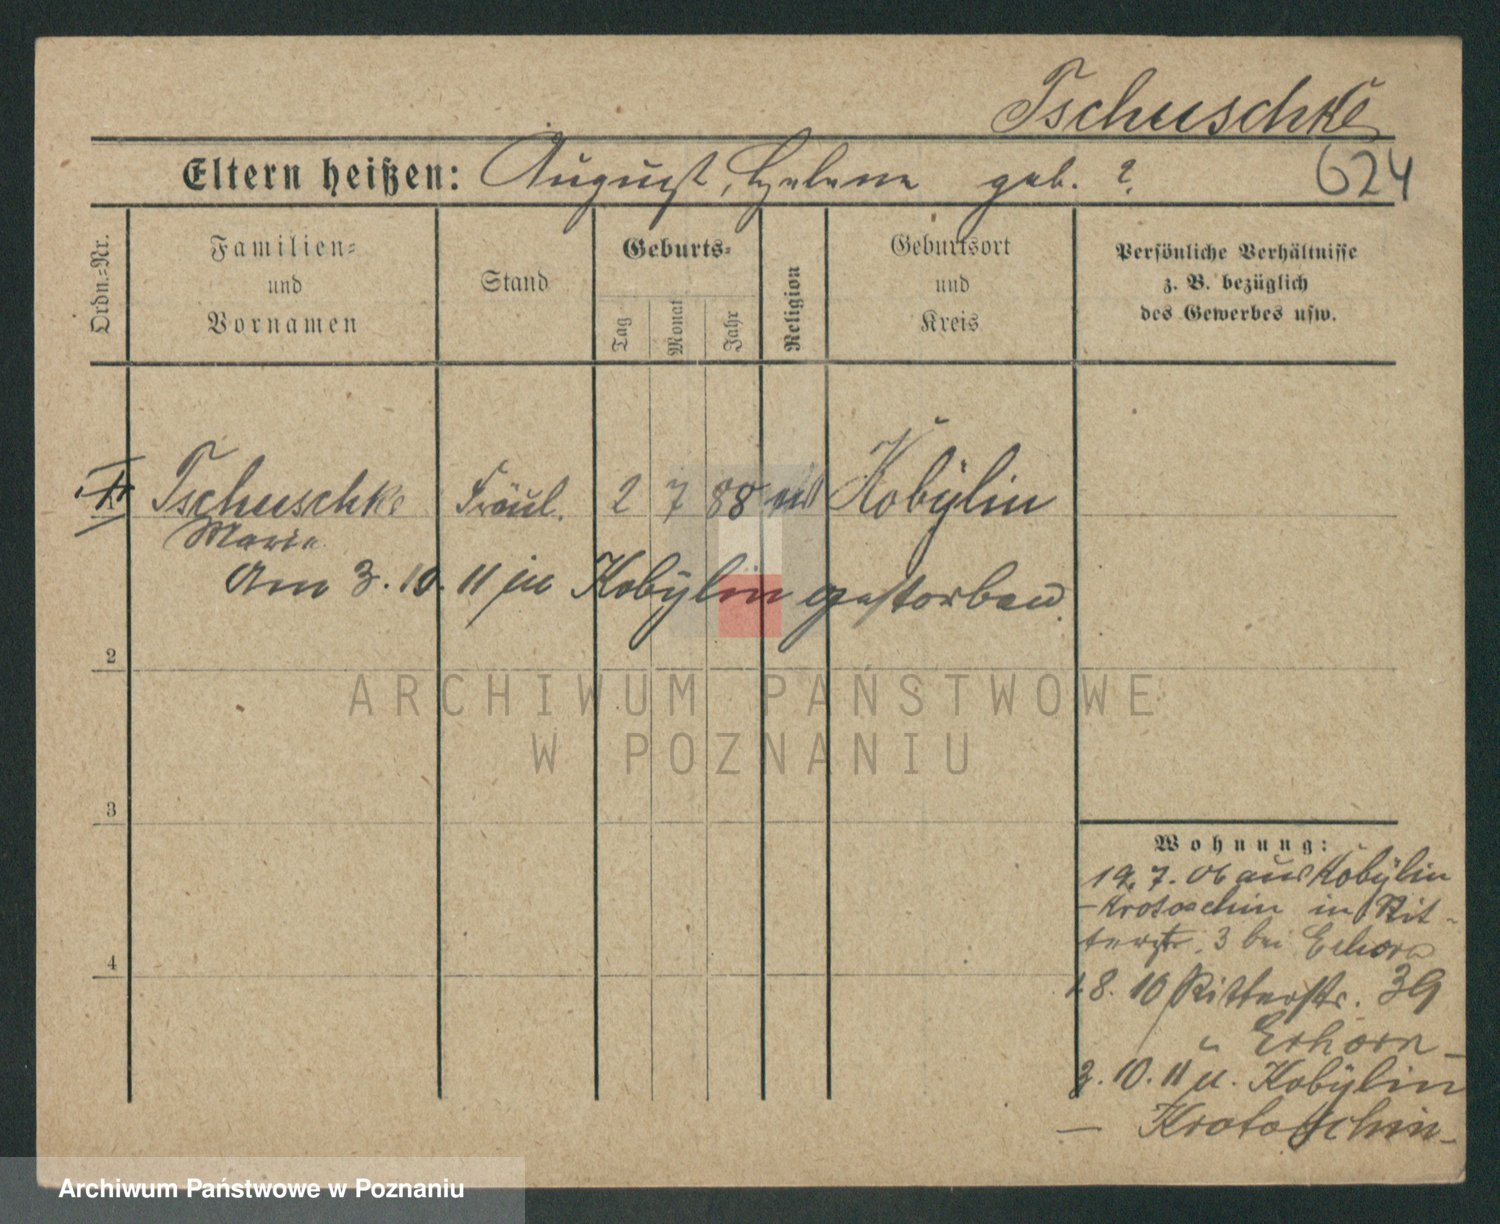 Tschuschke
624
Eltern heißen: August, Helene geb. ?
Ordn.-Nr.
Familien-
und
Vornamen
Stand
Geburts-
Tag
Monat
Jahr
Religion
Geburtsort
und
Kreis
Persönliche Verhältnisse
z. B. bezüglich
des Gewerbes usw.
1 Tschuschke Fräul. 2 7 88 Kobylin
Marie
Am 3.10.11 in Kobylin gestorben.
2
3
4
ARCHIWUM PAŃSTWOWE
W POZNANIU
Wohnung:
19.7.06 aus Kobylin
-Krotoschin in Rit-
terstr. 3 bei Erhorn
1.8.10 Ritterstr. 39
Erhorn-
3.10.11 u. Kobylin
- Krotoschin-
Archiwum Państwowe w Poznaniu